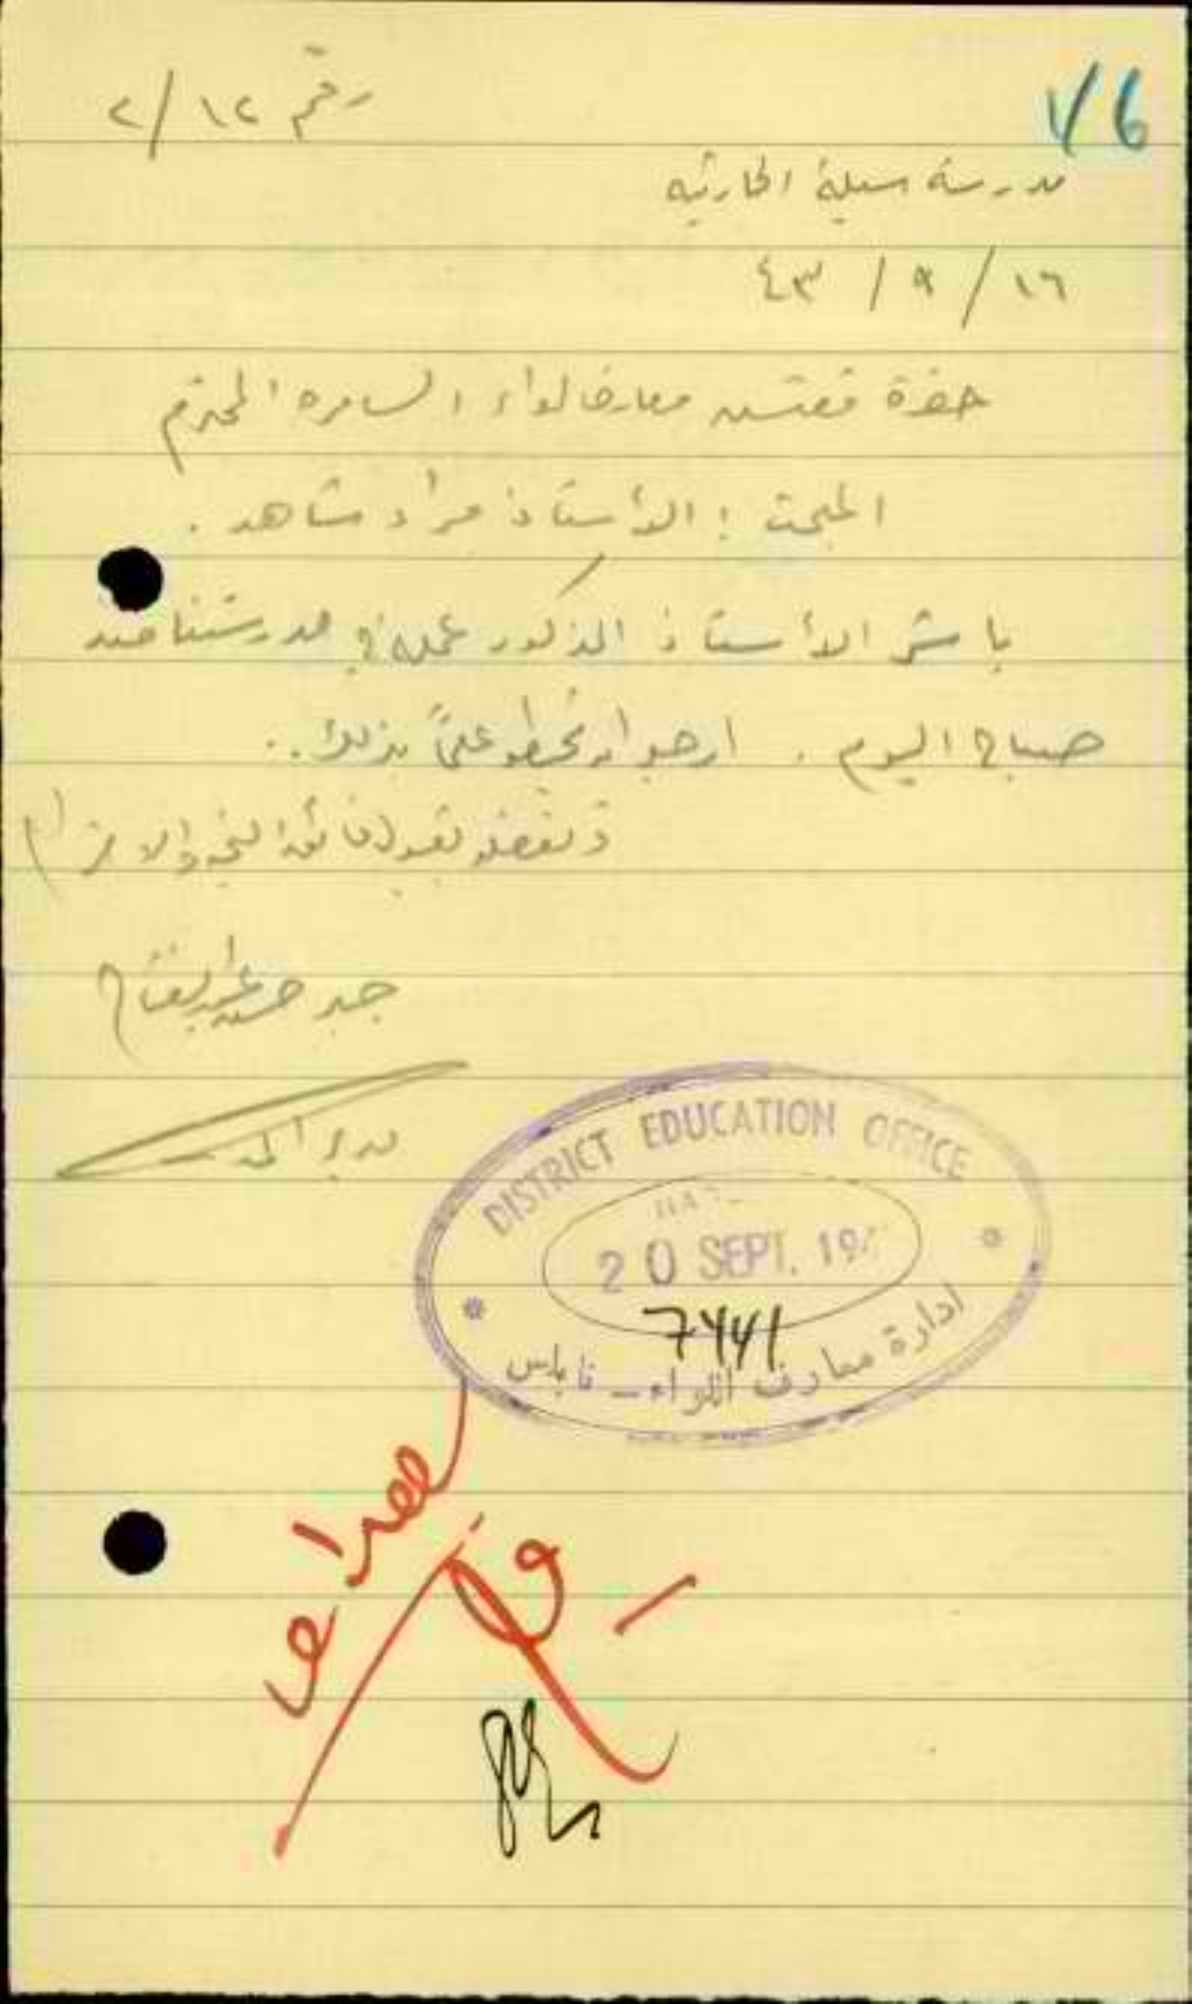 رقم ١٢/٢
٧٦
مدرسة سيلة الحارثيه
١٦/٩/٤٣
حضرة مفتش معارف لواء السامره المحترم
المبحث: الأستاذ مراد شاهد.
باشر الأستاذ المذكور عمله في مدرستنا منذ
صباح اليوم. ارجو ان تحيطو علماً بذلك..
وتفضلو بقبول فائق التحيه والاحترام
جبر حسن عبد الفتاح
مدير
DISTRICT EDUCATION OFFICE
20 SEPT. 19
ادارة معارف اللواء - نابلس